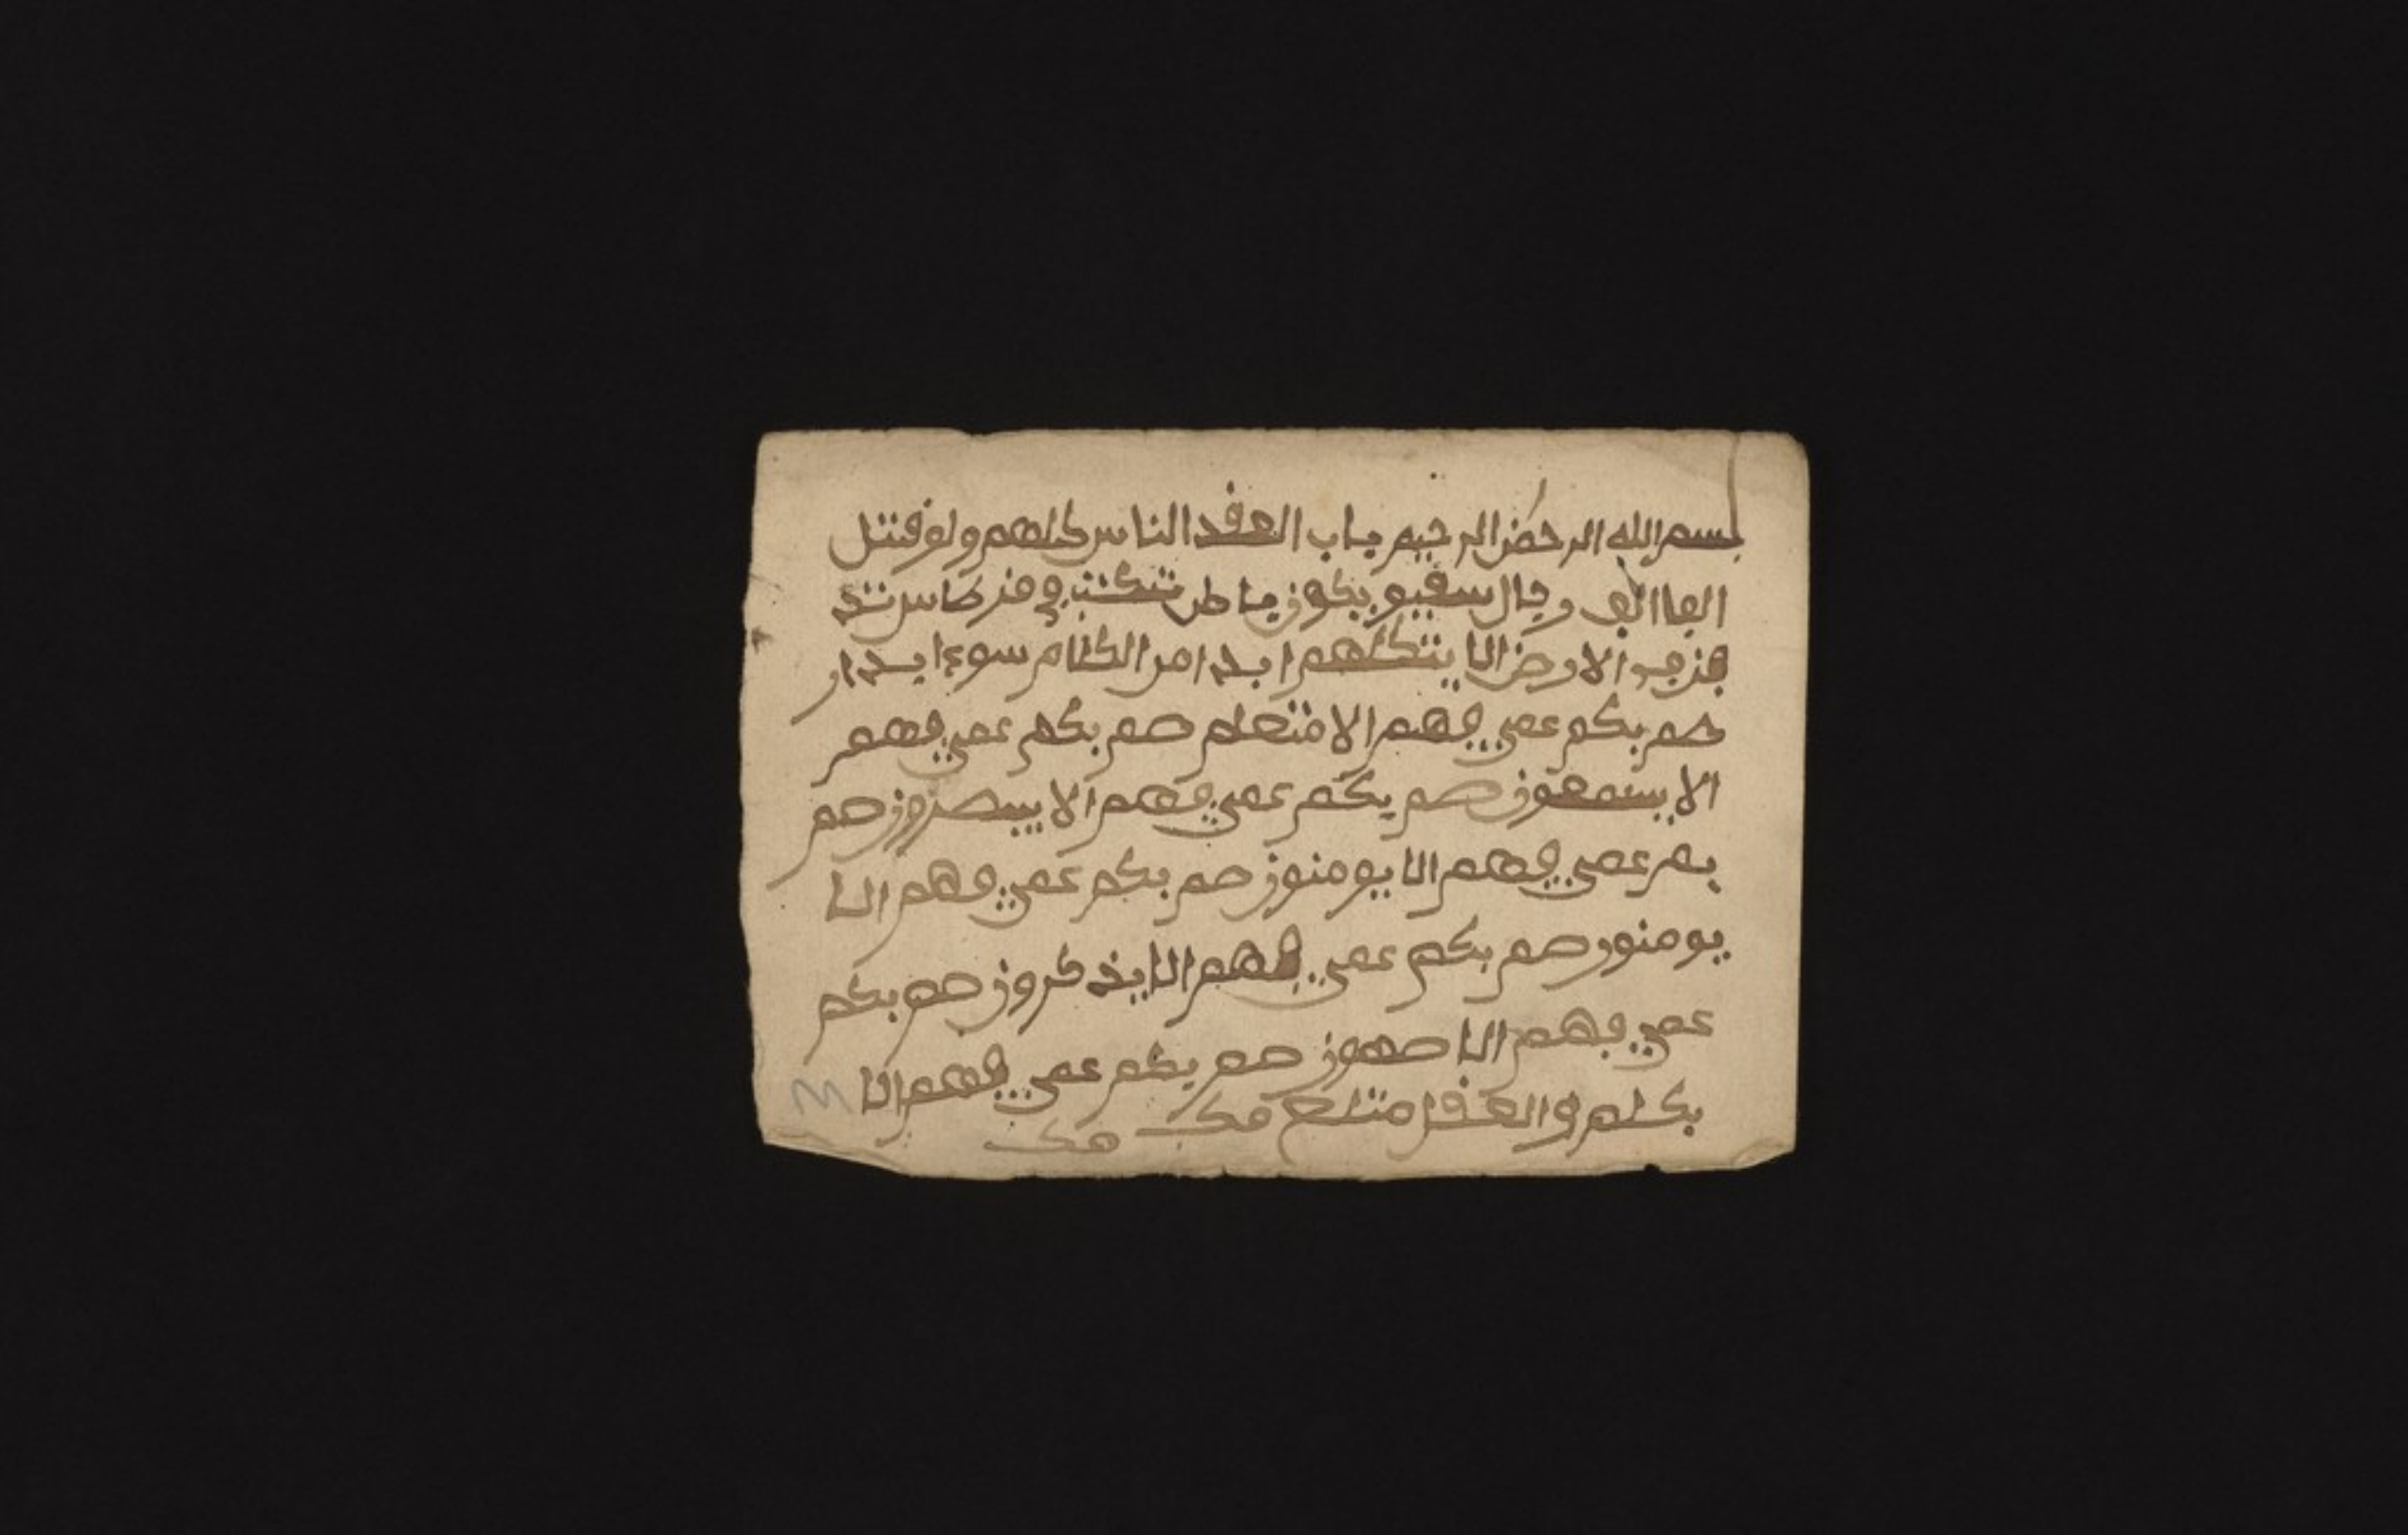 بسم الله الرحمن الرحيم باب العقد الناس كلهم ولو قتل
الفا الف رجال سقيو يكون خاطر تكتب في كاس تند
في الارض الا يتكلهم ابدا من الكلام سوءا ابدا
صم بكم عمي فهم الا متعلم صم بكم عمي فهم
الا يسمعون صم بكم عمي فهم الا يبصرون صم
بكم عمي فهم الا يومنون صم بكم عمي فهم الا
يومنون صم بكم عمي فهم الا يذكرون صم بكم
عمي فهم الا صهون صم بكم عمي فهم الا
بكلم والعقل